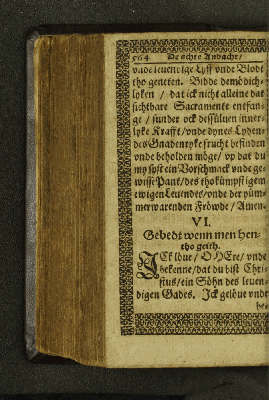 564 De achte Andacht/
vnde leuendige Lyff vnde Blodt
tho geneten. Bidde demödich-
lyken / dat ick nicht alleine dat
sichtbare Sacramente entfan-
ge / sunder ock dessüluen inner-
lyke Krafft / vnde dynes Lydens
des Gnadenryke frucht befinden
vnde beholden möge / vp dat du
my syst ein Vorschmack vnde ge-
wisse Pant / des thokümpstigem
ewigen Leuendes / vnde der nüm-
merwarenden Fröwde / Amen.
VI.
Gebedt wenn men hen-
tho geith.
JCk löue / O HEre / vnde
bekenne / dat du bist Chri-
stus / ein Söhn des leuen-
digen Gades. Jck gelöue vnde
be-